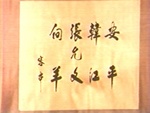 安平
韓江
張允文
何羊